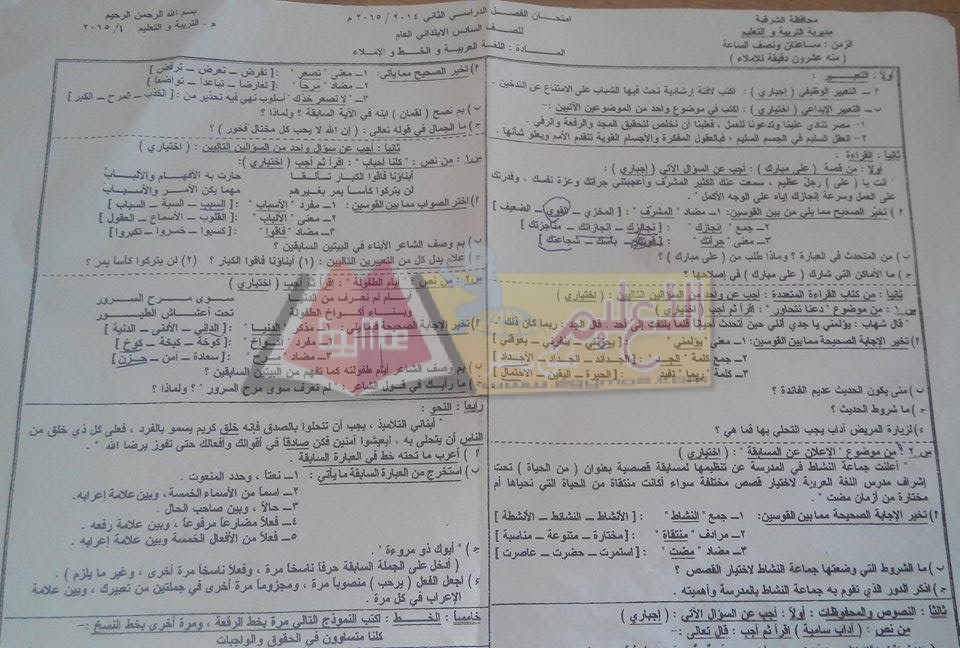 محافظة الشرقية
مديرية التربية و التعليم
الزمن : ساعتان ونصف الساعة
( منه عشرون دقيقة للإملاء )
امتحان الفصل الدراسي الثاني ٢٠١٤ / ٢٠١٥ م
للصف السادس الابتدائي العام
المــادة : اللغة العربية و الخط و الإملاء
بسم الله الرحمن الرحيم
م . التربية و التعليم ١ / ٢٠١٥
أولاً : التعبير :
أ – التعبير الوظيفي ( إجباري ) : اكتب لافتة إرشادية تحث فيها الشباب على الامتناع عن التدخين .
ب – التعبير الإبداعي ( اختياري ) : اكتب في موضوع واحد من الموضوعين الآتيين :–
١– مصر تنادي علينا وتدعونا للعمل ، فعلينا أن نخلص لتحقيق المجد والرفعة والرقي .
٢– العقل السليم في الجسم السليم ؛ فبالعقول المفكرة والأجسام القوية تتقدم الأمم ويعلو شأنها .
ثانياً : القراءة :
أولاً : من قصة ( على مبارك ) : أجب عن السؤال الآتي ( إجباري ) :
" أنت يا ( على ) رجل عظيم ، سمعت عنك الكثير المشرف وأعجبتني جرأتك وعزة نفسك ، وقدرتك
على العمل وسرعة إنجازك إياه على الوجه الأكمل "
أ ) تخير الصحيح مما يلي من بين القوسين: ١– مضاد " المشرف " : [ المخزي – القوي – الضعيف ]
٢– جمع " إنجازك " : [ نجائزك – إنجازاتك – متاجزتك ]
٣– معنى " جرأتك " : [ قوتك – بأسك – شجاعتك ]
ب ) من المتحدث في العبارة ؟ وماذا طلب من ( على مبارك ) ؟
جـ ) ما الأماكن التي شارك ( على مبارك ) في إصلاحها ؟
ثانياً : من كتاب القراءة المتعددة : أجب عن واحد من السؤالين التاليين : ( اختياري )
س ١ : من موضوع " دعنا نتحاور " : اقرأ ثم أجب ( اختياري )
" قال شهاب : يؤلمني يا جدي أنني حين أتحدث أحياناً قلما يلتفت إلى أحد . قال الجد : ربما كان ذلك "
أ ) تخير الإجابة الصحيحة مما بين القوسين: ١– معنى " يؤلمني " : [ يحزنني – – يعوقني ]
٢– جمع كلمة " الجد " : [ الجدائد – الجداد – الأجداد ]
٣– كلمة " ربما " تفيد : [ الحيرة – اليقين – الاحتمال ]
ب ) متى يكون الحديث عديم الفائدة ؟
جـ ) ما شروط الحديث ؟
ء ) لزيارة المريض آداب يجب التحلي بها فما هي ؟
س ٢ : من موضوع " الإعلان عن المسابقة " : ( اختياري )
" أعلنت جماعة النشاط في المدرسة عن تنظيمها لمسابقة قصصية بعنوان ( من الحياة ) تحت
إشراف مدرس اللغة العربية لاختيار قصص مختلفة سواء أكانت منتقاة من الحياة التي نحياها أم
مختارة من أزمان مضت " .
أ ) تخير الإجابة الصحيحة مما بين القوسين: ١– جمع " النشاط " : [ الأنشاط – النشائط – الأنشطة ]
٢– مرادف " منتقاة " : [ مختارة – متنوعة – مناسبة ]
٣– مضاد " مضت " : [ استمرت – حضرت – عاصرت ]
ب ) ما الشروط التي وضعتها جماعة النشاط لاختيار القصص ؟
جـ ) اذكر الدور الذي تقوم به جماعة النشاط بالمدرسة وأهميته .
ثالثاً : النصوص والمحفوظات : أولاً : أجب عن السؤال الآتي : ( إجباري )
من نص : ( آداب سامية ) اقرأ ثم أجب : قال تعالى :–
أ ) تخير الصحيح مما يأتي: ١– معنى " تصعر " : [ تفرض – تعرض – ترفض ]
٢– مضاد " مرحاً " : [ تعارضاً – تباعداً – تواضعاً ]
٣– " لا تصعر خدك " أسلوب نهي فيه تحذير من : [ الكذب – المرح – الكبر ]
ب ) بم نصح ( لقمان ) ابنه في الآية السابقة ؟ ولماذا ؟
جـ ) ما الجمال في قوله تعالى : ( إن الله لا يحب كل مختال فخور ) ؟
ثانياً : أجب عن سؤال واحد من السؤالين التاليين : ( اختياري )
س١ : من نص : " كلنا أحباب " اقرأ ثم أجب ( اختياري ) :
أبناؤنا فاقوا الكبار تألقاً حارت به الأفهام والألباب
لن يتركوا كأساً يمر بغيرهم مهما يكن الأمر والأسباب
أ ) اختر الصواب مما بين القوسين: ١– مفرد " الأسباب " : [ السبب – السبة – السباب ]
٢– معنى " الألباب " : [ القلوب – الأسماع – العقول ]
٣– مضاد " فاقوا " : [ كسبوا – خسروا – تكبروا ]
ب ) بم وصف الشاعر الأبناء في البيتين السابقين ؟
جـ ) علام يدل كل من التعبيرين التاليين : ( ١ ) أبناؤنا فاقوا الكبار ؟ ( ٢ ) لن يتركوا كأساً يمر ؟
س٢ : من نص : " أيام الطفولة " : اقرأ ثم أجب ( اختياري )
أيام لم تعرف من الدنيا سوى مرح السرور
وبناء أكواخ الطفولة تحت أعشاش الطيور
أ ) تخير الإجابة الصحيحة مما يلي : ١– مذكر " الدنيا " : [ الداني – الأدنى – الدنية ]
٢– مفرد " أكواخ " : [ كوخة – كيخة – كوخ ]
٣– مضاد " مرح " : [ سعادة – أمن – حزن ]
ب ) بم وصف الشاعر أيام طفولته كما تفهم من البيتين السابقين ؟
جـ ) ما رأيك في قول الشاعر " لم تعرف سوى مرح السرور " ؟ ولماذا ؟
رابعاً : النحو :
" أبنائي التلاميذ ، يجب أن تتحلوا بالصدق فإنه خلق كريم يسمو بالفرد ، فعلى كل ذي خلق من
الناس أن يتحلى به ، ليعيشوا آمنين فكن صادقاً في أقوالك وأفعالك حتى تفوز برضا الله " .
أ ) أعرب ما تحته خط في العبارة السابقة .
ب ) استخرج من العبارة السابقة ما يأتي :
١– نعتاً ، وحدد المنعوت .
٢– اسماً من الأسماء الخمسة ، وبين علامة إعرابه .
٣– حالاً ، وبين صاحب الحال .
٤– فعلاً مضارعاً مرفوعاً ، وبين علامة رفعه .
٥– فعلاً من الأفعال الخمسة وبين علامة إعرابه .
جـ ) " أبوك ذو مروءة " .
( أدخل على الجملة السابقة حرفاً ناسخاً مرة ، وفعلاً ناسخاً مرة أخرى ، وغير ما يلزم )
ء ) اجعل الفعل ( يرحب ) منصوباً مرة ، ومجزوماً مرة أخرى في جملتين من تعبيرك ، وبين علامة
الإعراب في كل مرة .
خامساً : الخط : اكتب النموذج التالي مرة بخط الرقعة ، ومرة أخرى بخط النسخ :–
كلنا متساوون في الحقوق والواجبات
www.egymoe.com